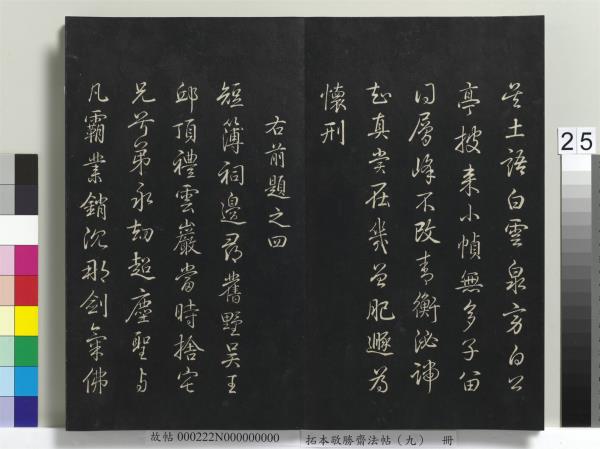 土語白雲泉方白公
亭披來小幀無多子留
層峰不改青衡泌諦
知真賞在幾曾肥遯為
懷刑
右前題之四
短簿祠邊尋舊墅吳王
邱頂禮雲巖當時捨宅
兄弟永劫超塵聖與
凡霸業銷沈那劍氣佛
25
故帖 000222N000000000 拓本敬勝齋法帖（九） 冊